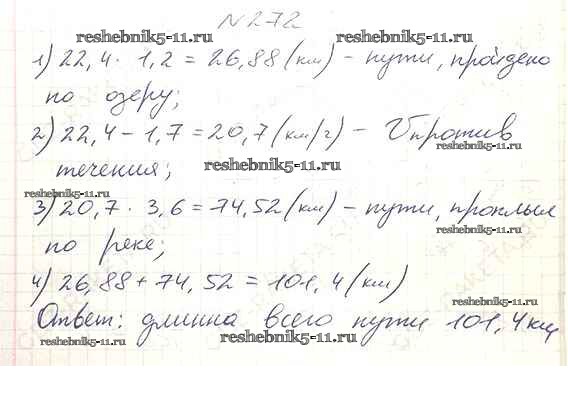 N 272
reshebnik5-11.ru
reshebnik5-11.ru
1) 22,4 · 1,2 = 26,88 (км) – пути, пройдено
по озеру;
2) 22,4 – 1,7 = 20,7 (км/ч) – V против
reshebnik5-11.ru
течения;
reshebnik5-11.ru
reshebnik5-11.ru
3) 20,7 · 3,6 = 74,52 (км) – пути, проплыл
по реке;
4) 26,88 + 74,52 = 101,4 (км)
reshebnik5-11.ru
Ответ: длинна всего пути 101,4 км
reshebnik5-11.ru
reshebnik5-11.ru